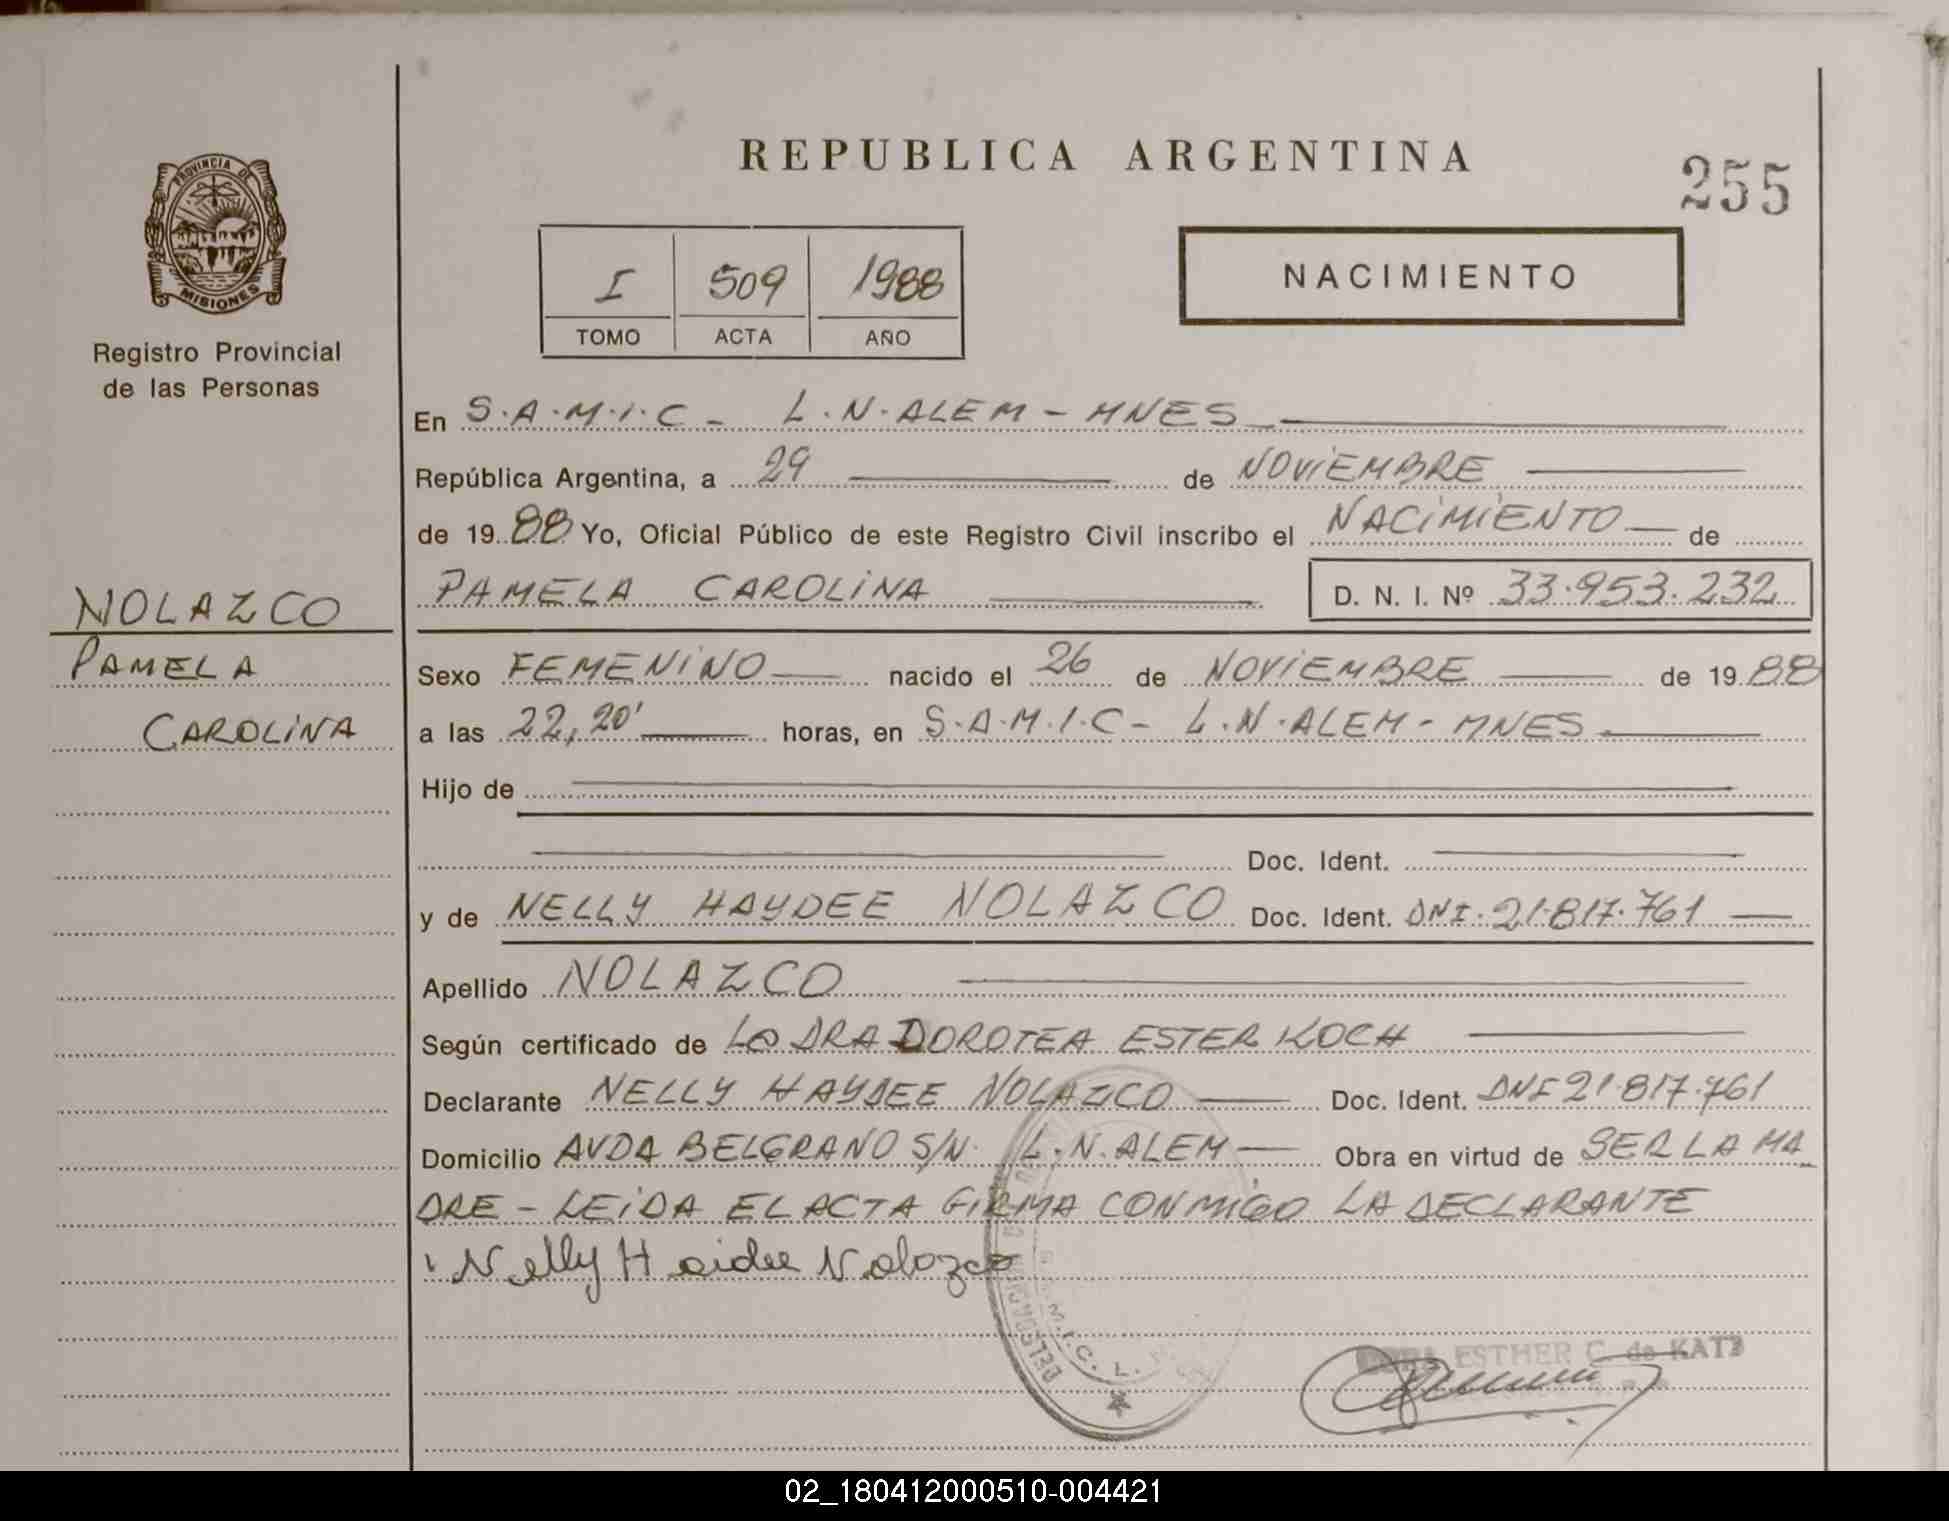 REPUBLICA ARGENTINA
255
PROVINCIA DE
MISIONES
Registro Provincial
de las Personas
I 509 1988
TOMO ACTA AÑO
NACIMIENTO
En S.A.M.I.C - L.N.ALEM - MNES
República Argentina, a 29 de NOVIEMBRE
de 1988 Yo, Oficial Público de este Registro Civil inscribo el NACIMIENTO de
PAMELA CAROLINA D. N. I. Nº 33.953.232
NOLAZCO
PAMELA
CAROLINA
Sexo FEMENINO nacido el 26 de NOVIEMBRE de 1988
a las 22,20' horas, en S.A.M.I.C - L.N.ALEM - MNES
Hijo de
Doc. Ident.
y de NELLY HAYDEE NOLAZCO Doc. Ident. DNI.21.817.761
Apellido NOLAZCO
Según certificado de La DRA DOROTEA ESTER KOCH
Declarante NELLY HAYDEE NOLAZCO Doc. Ident. DNI 21.817.761
Domicilio AVDA BELGRANO S/N. L.N.ALEM Obra en virtud de SER LA MA
DRE - LEIDA EL ACTA FIRMA CONMIGO LA DECLARANTE
Nelly Haidee Nolazco
ESTHER C. de KATZ
02_180412000510-004421